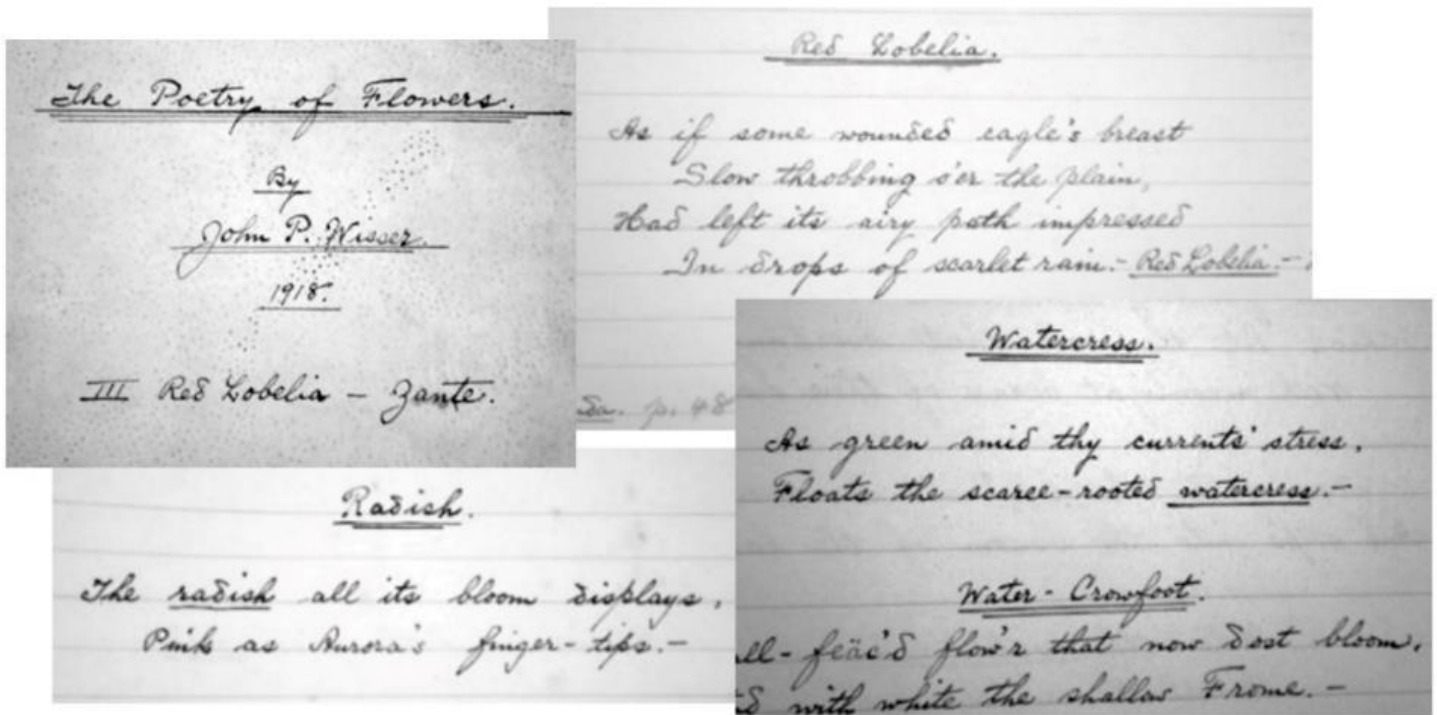 The Poetry of Flowers.
By
John P. Wisser.
1918.
III Red Lobelia – Zante.
Red Lobelia.
As if some wounded eagle's breast
Slow throbbing o'er the plain,
Had left its airy path impressed
In drops of scarlet rain.- Red Lobelia. -
p. 48
Radish.
The radish all its bloom displays,
Pink as Aurora's finger-tips.-
Watercress.
As green amid thy currents' stress,
Floats the scarce-rooted watercress.-
Water - Crowfoot.
flow'r that now dost bloom,
with white the shallow Frome.-